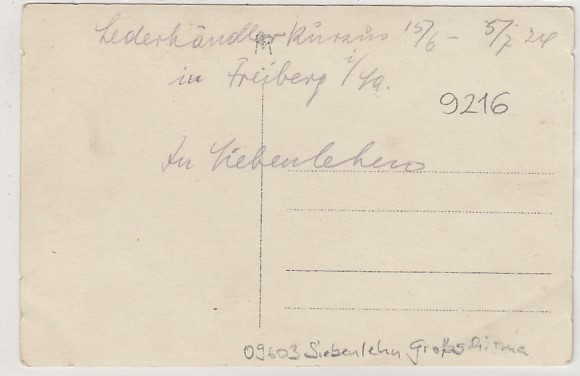 Lederhändler Kursus 15/6 - 5/7 24
in Freiberg i/Sa.
9216
In Siebenlehn
09603 Siebenlehn Großschirma